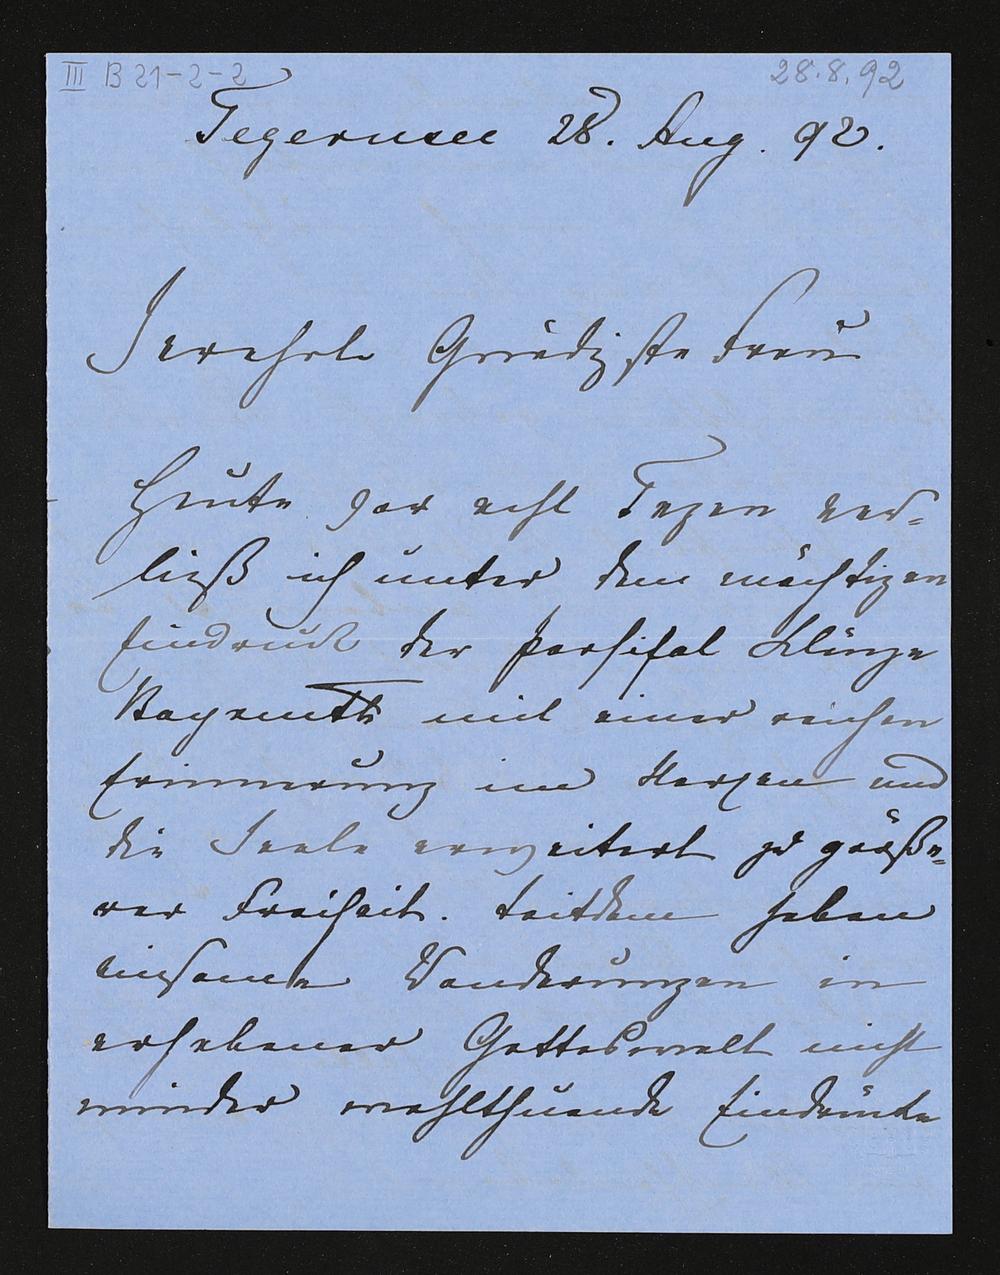 III B 21-2-2
28.8.92
Tegernsee 28. Aug. 92.
Gnädigste Frau
Heute vor acht Tagen ver-
ließ ich unter dem mächtigen
Eindruck der Parsifal Klänge
Bayreuth mit einer reichen
Erinnerung im Herzen und
die Seele erweitert zu größe-
rer Freiheit. Seitdem haben
einsame Wanderungen in
erhabener Gotteswelt nicht
minder wohlthuende Eindrücke